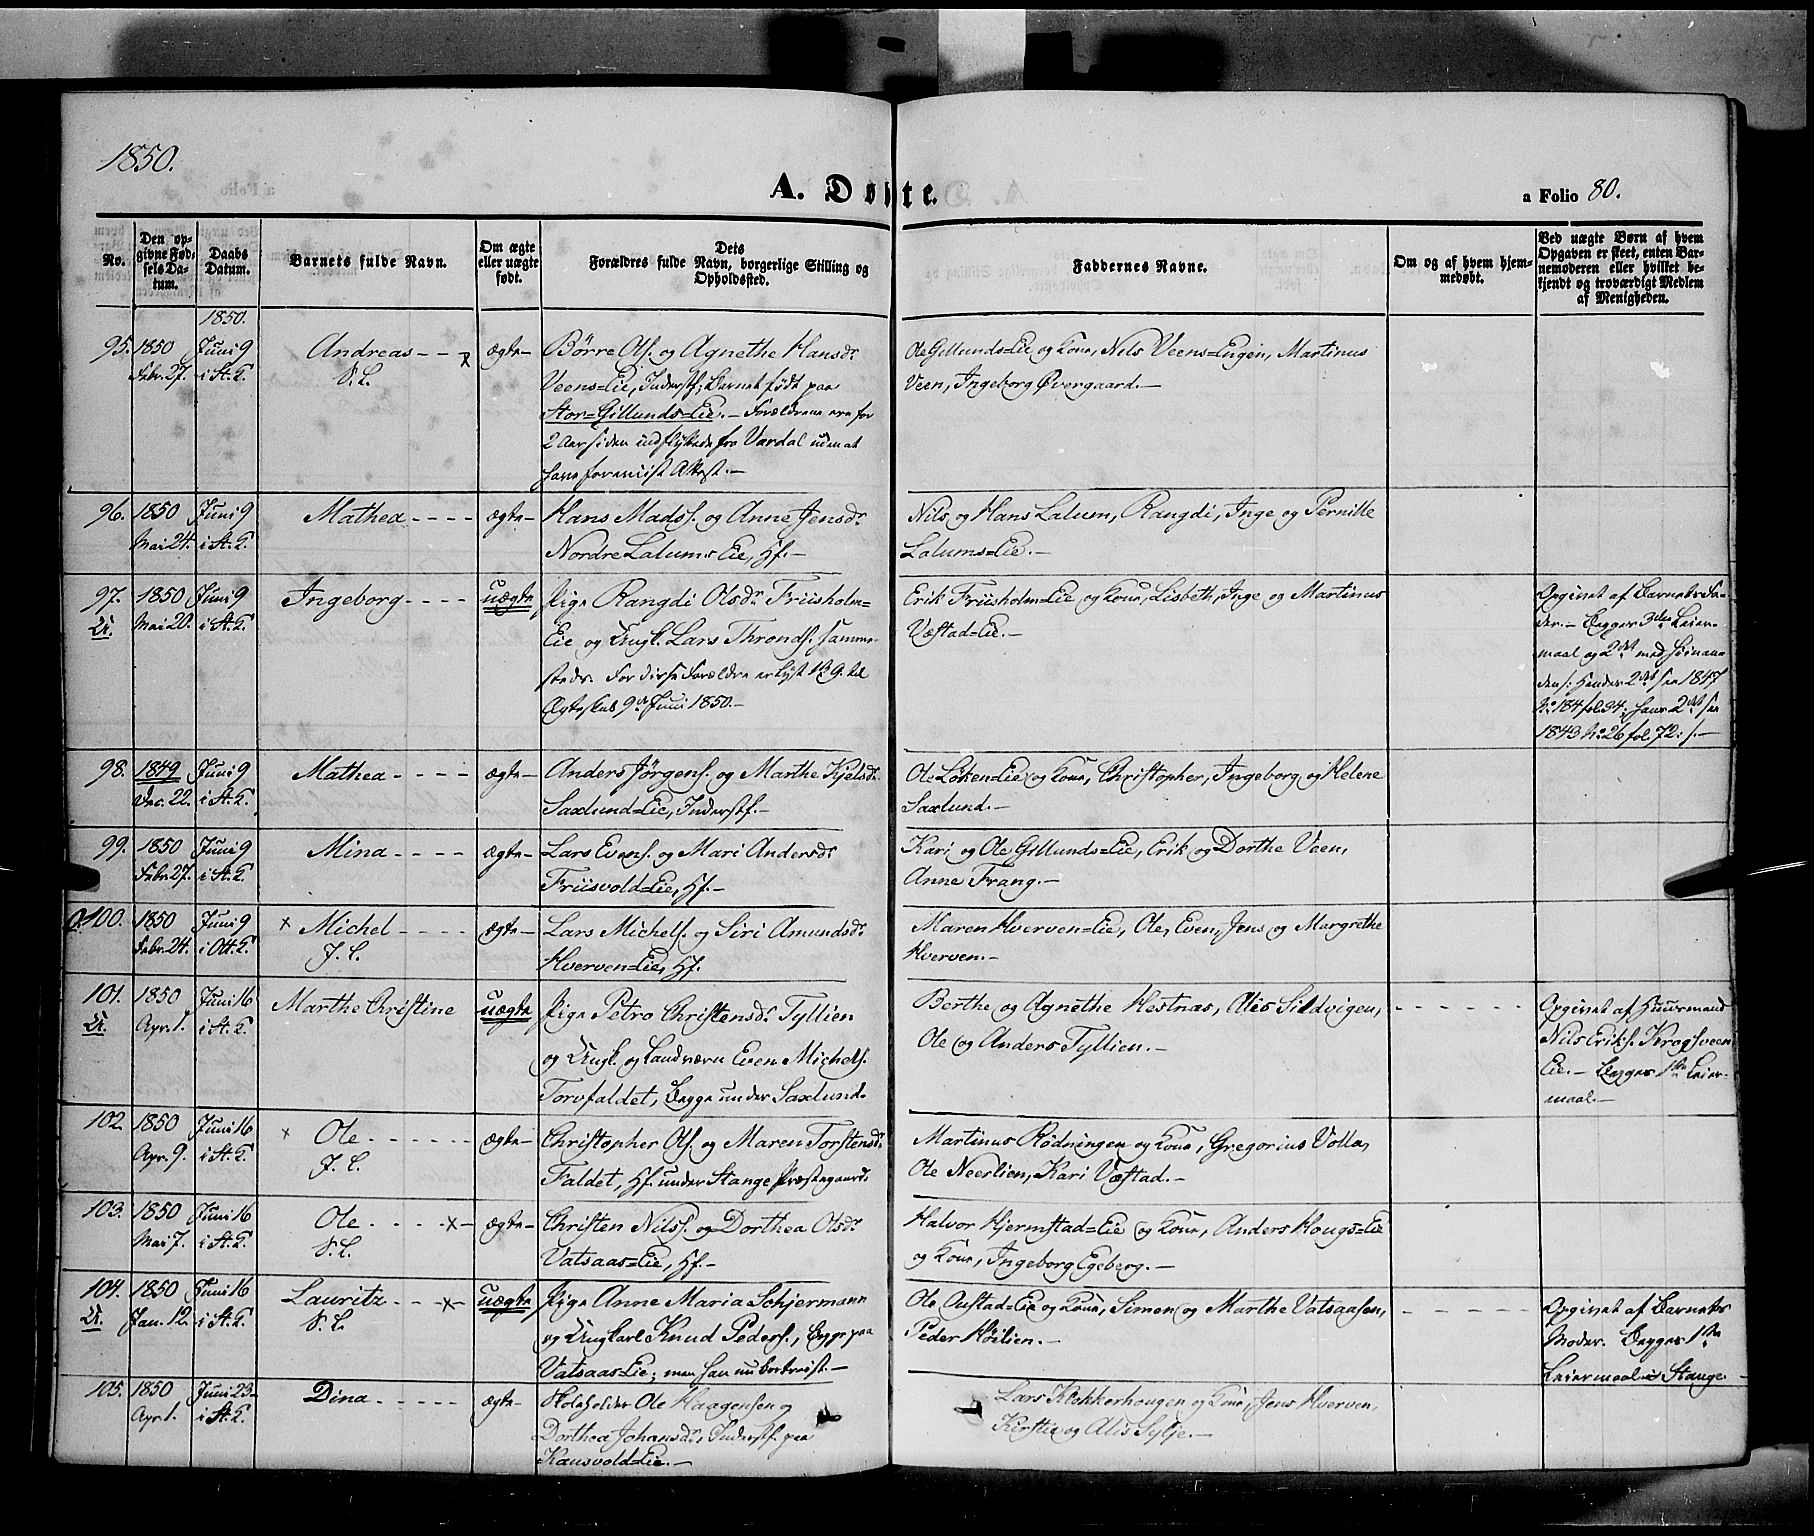 1850.
A. Døbte.
a Folio 80.
No.
Den opgivne Fødselsdatum.
Daabs Datum.
Barnets fulde Navn.
Om ægte eller uægte født.
Dets Forældres fulde Navn, borgerlige Stilling og Opholdssted.
Faddernes Navne.
Om og af hvem hjemmedøbt.
Ved uægte Børn af hvem Opgaven er skeet, enten Barnemoderen eller hvilket bekjendt og troværdigt Medlem af Menigheden.
1850.
95. 1850 Juni 9 Andreas - - x ægte - Børre Ols. og Agnethe Hansdr. Ole Gillunds=Eie og Kone, Nils Veens=Eugen, Martinus
Febr. 27. i St. K. Veens=Eie, Inderstf; Barnet født paa Veen, Ingeborg Øvergaard. -
Stor=Gillunds=Eie. - Forældrene ere for
2 Aar siden indflyttede fra Vardal uden at
have foreviist Attest. -
96. 1850 Juni 9 Mathea - - - - ægte - Hans Mads. og Anne Jensdr. Nils og Hans Lalum, Rangdi, Inge og Pernille
Mai 24. i St. K. Nordre Lalums Eie, Hf. - Lalums=Eie. -
97. 1850 Juni 9 Ingeborg - - - - uægte Pige Rangdi Olsdr. Friisholm= Erik Friisholm=Eie og Kone, Lisbeth, Inge og Martinus Opgivet af Barnets Fa-
U. Mai 20. i St. K. Eie og Ungk. Lars Thronds. samme- Væstad=Eie. - der. - Begges 3die Leier-
steds. For disse Forældre er lyst 1ste G. til maal og 2det med hinan-
Ægteskab 9de Juni 1850. - den: Hendes 2det see 1847
No 184 fol. 94; hans 2det see
1843 No 26 fol. 72. -
98. 1849 Juni 9 Mathea - - - - ægte - Anders Jørgens. og Marthe Kjelsdr. Ole Løken=Eie og Kone, Christopher, Ingeborg og Helene
Dec. 22. i St. K. Saxlund=Eie, Inderstf. - Saxlund. -
99. 1850 Juni 9 Mina - - - - ægte - Lars Evens. og Mari Andersdr. Kari og Ole Gillunds=Eie, Erik og Dorthe Veen,
Febr. 27. i St. K. Friisvold=Eie, Hf. - Anne Frang. -
100. 1850 Juni 9 x Michel - - - - ægte - Lars Michels. og Siri Amundsdr. Maren Hverven=Eie, Ole, Even, Jens og Margrethe
Febr. 24. i Ott. K. Hverven=Eie, Hf. Hverven. -
101. 1850 Juni 16 Marthe Christine uægte Pige Petro Christensdr. Tyllien Berthe og Agnethe Hestnæs, Alis Sildvigen, - - - - - - Opgivet af Huusmand
U. Apr. 1. i St. K. og Ungk. og Landværn Even Michels. Ole og Anders Tyllien. - Nils Eriks. Krogsveen
Torvfaldet, Begge under Saxlund. Eie. - Begges 1ste Leier-
maal. -
102. 1850 Juni 16 x Ole - - - - - - ægte - Christopher Ols. og Maren Torstensdr. Martinus Rødningen og Kone, Gregorius Volla,
Apr. 9. i St. K. Faldet, Hf. under Stange Præstegaard. Ole Neerlien, Kari Væstad. -
103. 1850 Juni 16 Ole - - - - x - ægte - Christen Nils. og Dorthea Olsdr. Halvor Hjermstad=Eie og Kone, Anders Hougs=Eie
Mai 7. i St. K. Vatsaas=Eie, Hf. - og Kone, Ingeborg Egeberg. -
104. 1850 Juni 16 Lauritz - - - x - uægte Pige Anne Maria Schjermann Ole Oustad=Eie og Kone, Simen og Marthe Vatsaasen, - - - - - - Opgivet af Barnets
U. Jan. 12. i St. K. og Ungkarl Knud Peders., Begge paa Peder Høilien. - Moder. Begges 1ste
Vatsaas=Eie; men han nu bortreist. - Leiermaal i Stange -
105. 1850 Juni 23 Dina - - - - - ægte - Ole Haagensen og Lars Klokkerhougen og Kone, Jens Hverven,
Apr. 1. i St. K. Dorthea Johansdr., Inderstf. paa Kirstie og Alis Sylje. -
Kausvold=Eie. -